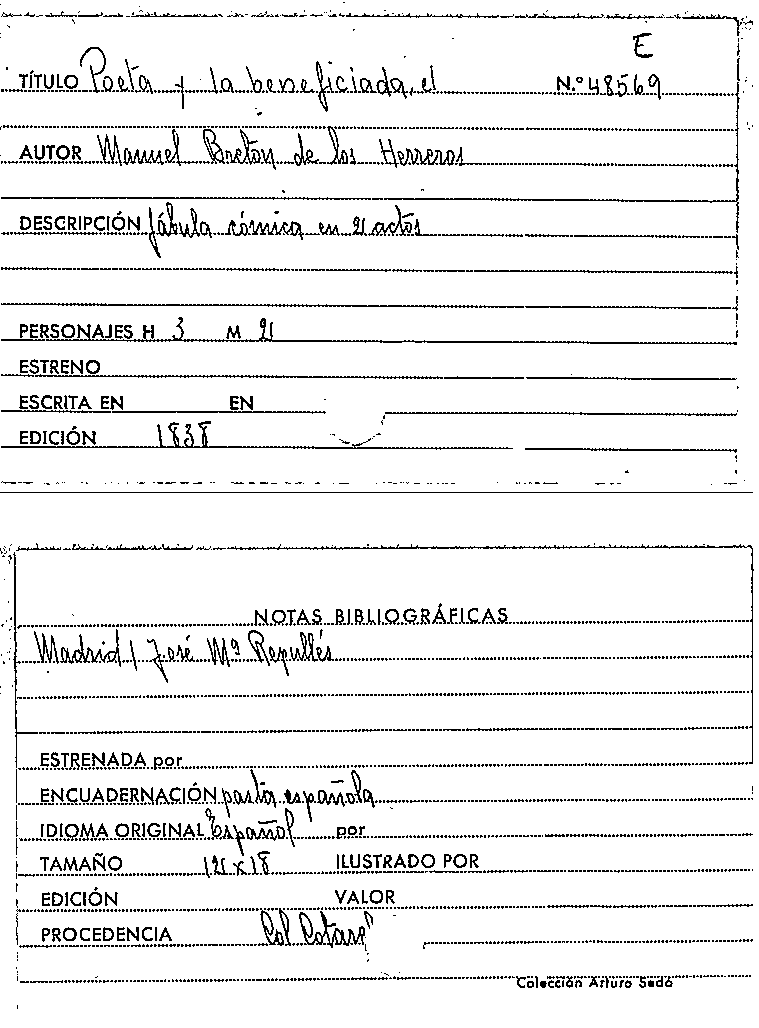 E
TÍTULO Poeta y la beneficiada, el N.º 48569
AUTOR Manuel Bretón de los Herreros
DESCRIPCIÓN fábula cómica en 2 actos
PERSONAJES H 3 M 2
ESTRENO
ESCRITA EN EN
EDICIÓN 1838
NOTAS BIBLIOGRÁFICAS
Madrid, José Mª Repullés
ESTRENADA por
ENCUADERNACIÓN pasta española
IDIOMA ORIGINAL Español por
TAMAÑO 12 x 18 ILUSTRADO POR
EDICIÓN VALOR
PROCEDENCIA Col Cotarel
Colección Arturo Sedó